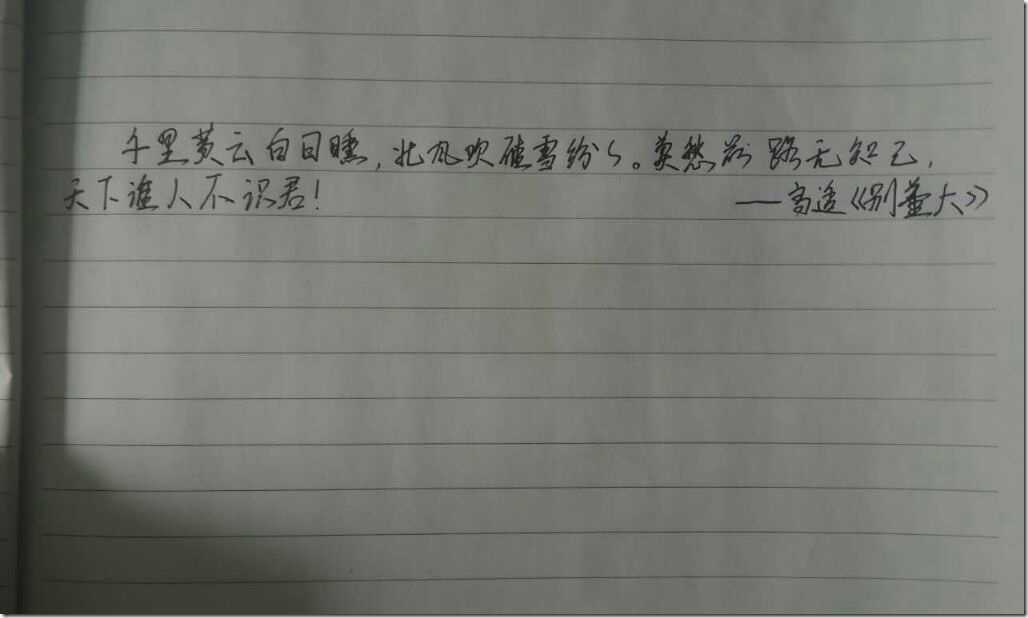 千里黄云白日曛,北风吹雁雪纷纷。莫愁前路无知己,
天下谁人不识君!
——高适《别董大》